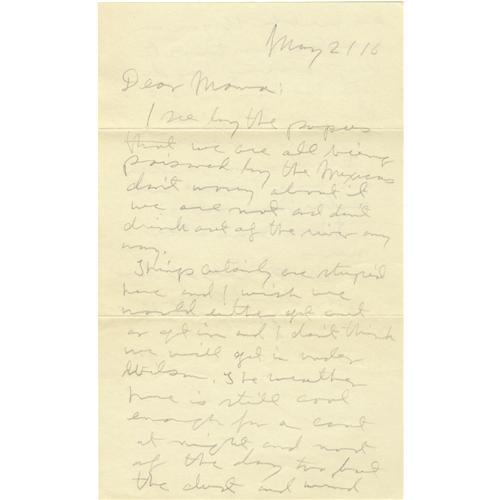 May 21 16
Dear Mama:
I see by the papers
that we are all being
poisoned by the Mexicans
don't worry about it
we are not and don't
drink out of the river any
way.
Things certainly are stupid
here and I wish we
would either get out
or get in and I don't think
we will get in under
Wilson. The weather
here is still cool
enough for a coat
at night and most
of the day too but
the dust and wind